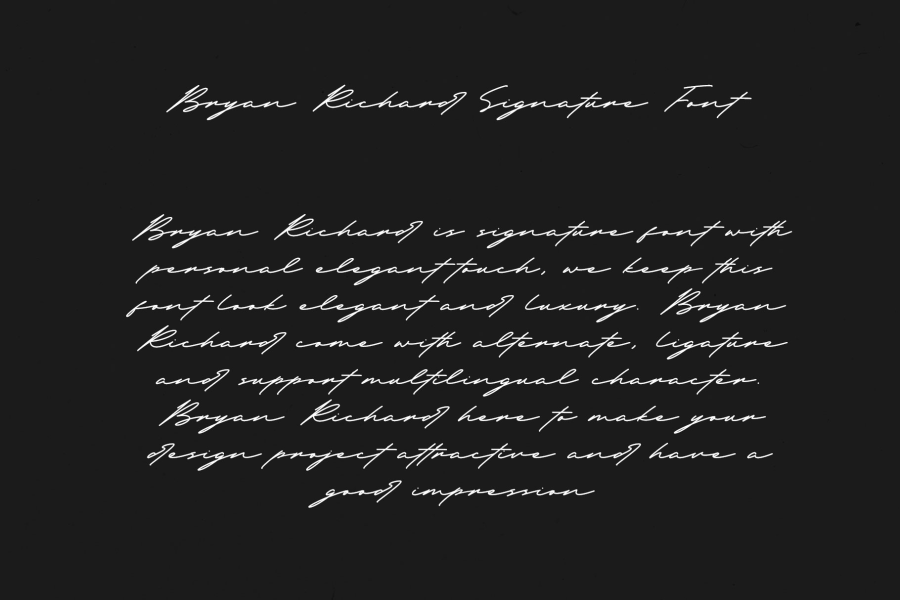 Bryan Richard Signature Font
Bryan Richard is signature font with
personal elegant touch, we keep this
font look elegant and luxury. Bryan
Richard come with alternate, ligature
and support multilingual character.
Bryan Richard here to make your
design project attractive and have a
good impression